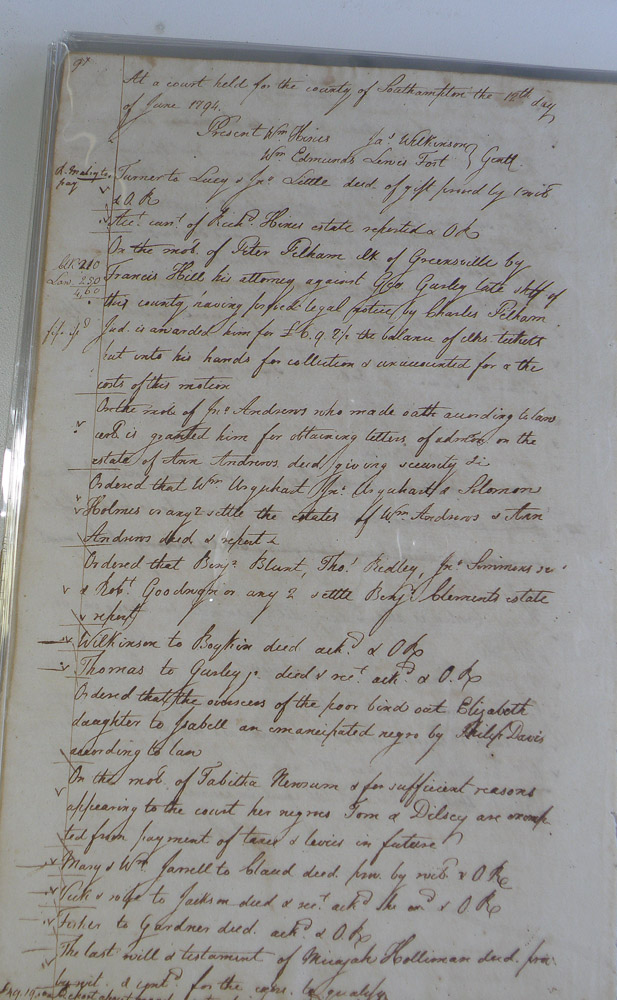 At a court held for the county of Southampton the 12th day
of June 1794.
Present Wm Hines Jas Wilkinson
Wm Edmunds Lewis Fort } Gentl
Turner to Lucy & Jno Little deed of gift proved by 1 wit
& O.R
Acct. curt. of Richd. Hines estate reported & OR
On the mot. of Peter Pelham clk of Greensville by
Francis Hill his attorney against Geo Gurley late shff of
this county having proved legal notice by Charles Pelham
Jud. is awarded him for £6.9.2½ the balance of clks tickets
put into his hands for collection & unaccounted for & the
costs of this motion
On the mot. of Jno. Andrews who made oath according to law
cert. is granted him for obtaining letters of admon. on the
estate of Ann Andrews decd giving security &c
Ordered that Wm Urquhart Jno. Urquhart & Solomon
Holmes or any 2 settle the estates of Wm Andrews & Ann
Andrews decd & report
Ordered that Benja. Blunt, Thos. Ridley, Jno Simmons
& Robt. Goodwyn or any 2 settle Benja. Clements estate
& report
Wilkinson to Boykin deed ackd & OR
Thomas to Gurley deed & rect. ackd & O.R
Ordered that the overseers of the poor bind out Elizabeth
daughter to Isabell an emancipated negro by Philip Davis
according to law
On the mot. of Tabitha Newsum & for sufficient reasons
appearing to the court her negroes Tom & Dilsey are exemp
ted from payment of taxes & levies in future
Mary & Wm. Jarrell to Claud deed prov. by wits & OR
Vick & wife to Jackson deed & rect. ackd she exd & OR
Fisher to Gardner deed ackd & OR
The last will & testament of Micajah Holliman decd. pro.
by wit. & contd for the exors. to qualify